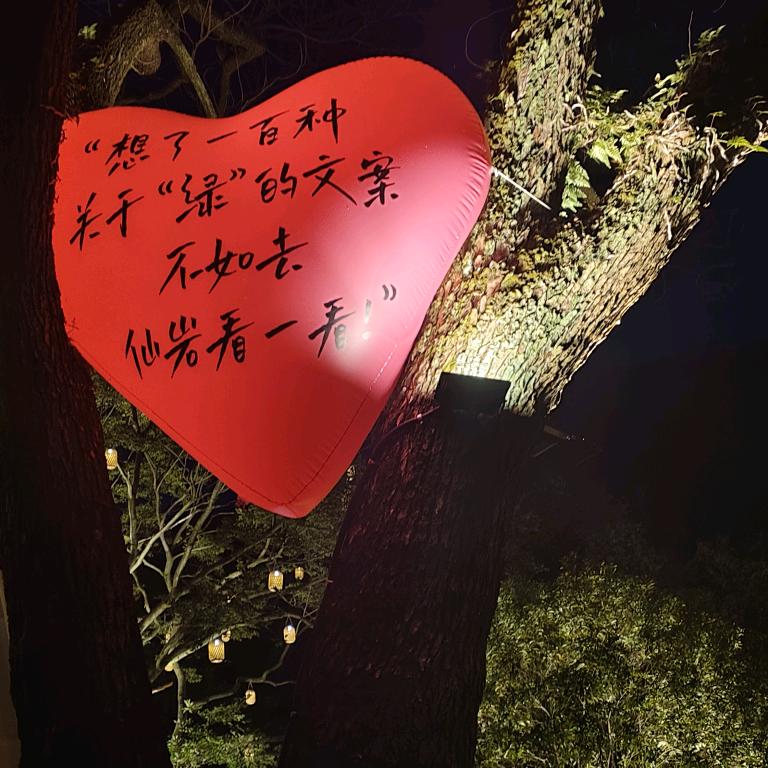 “想了一百种
关于“绿”的文案
不如去
仙岩看一看！”